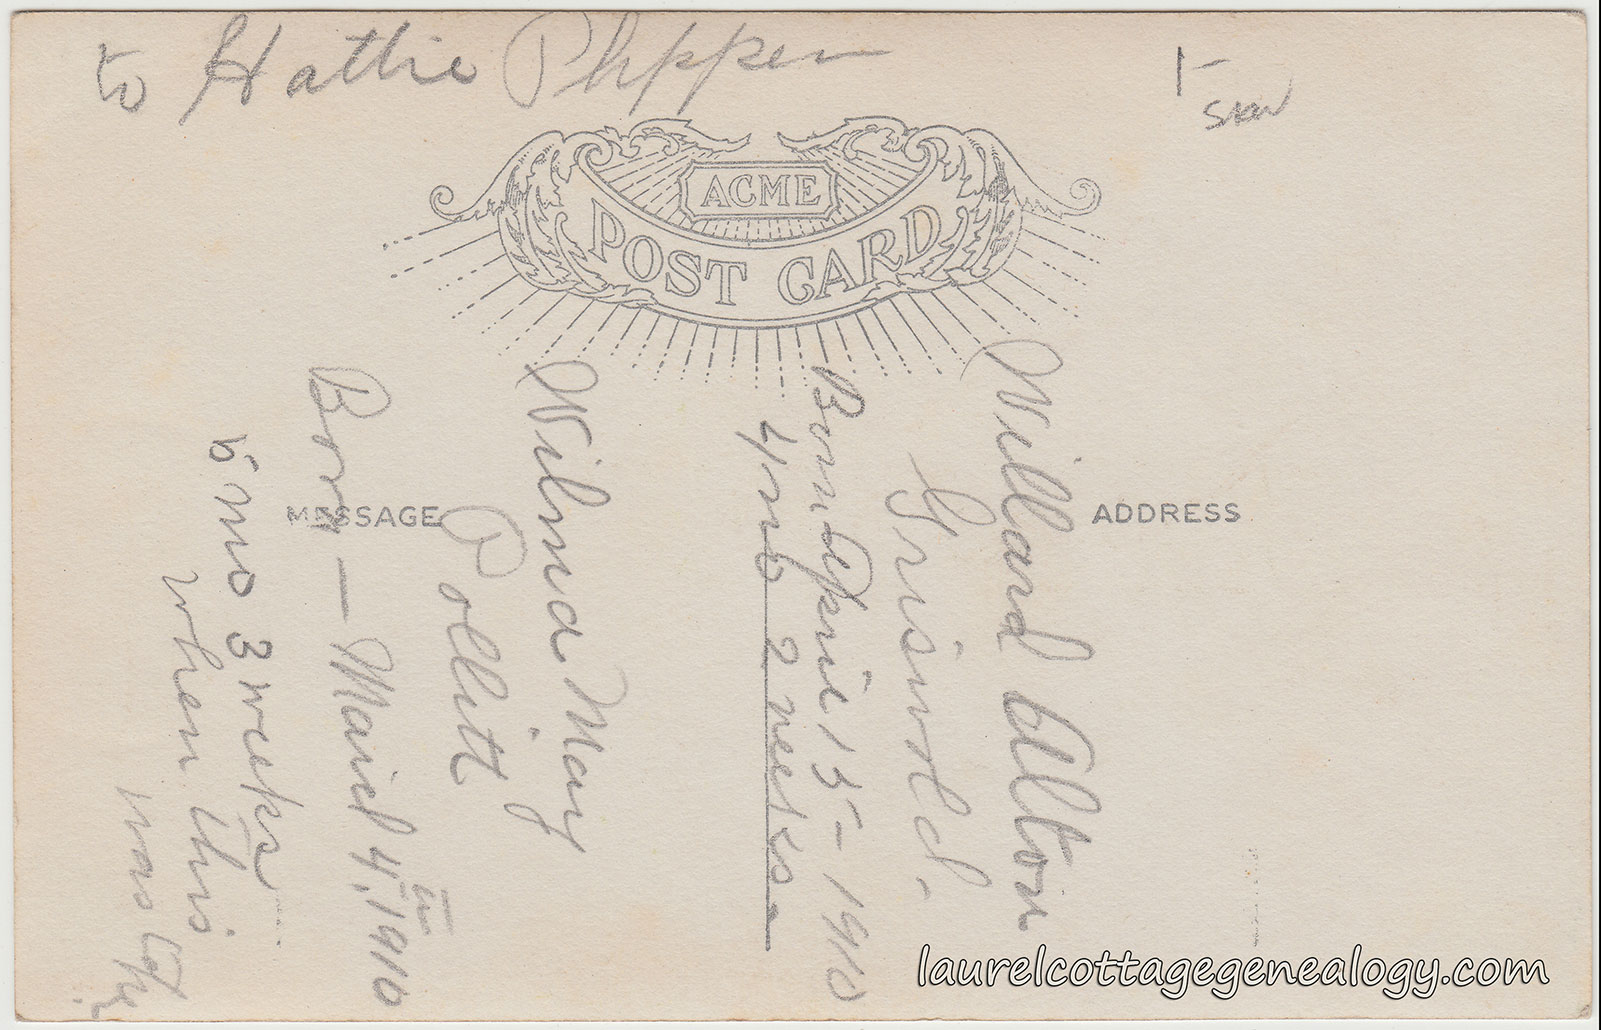 to Hattie Phippen
ACME
POST CARD
MESSAGE
ADDRESS
Willard Alton
Griswold.
Born April 15 - 1910
4 mo 2 weeks.
Wilma May
Pollitt
Born - March 4th 1910
5 mo 3 weeks
when this
was
laurelcottagegenealogy.com